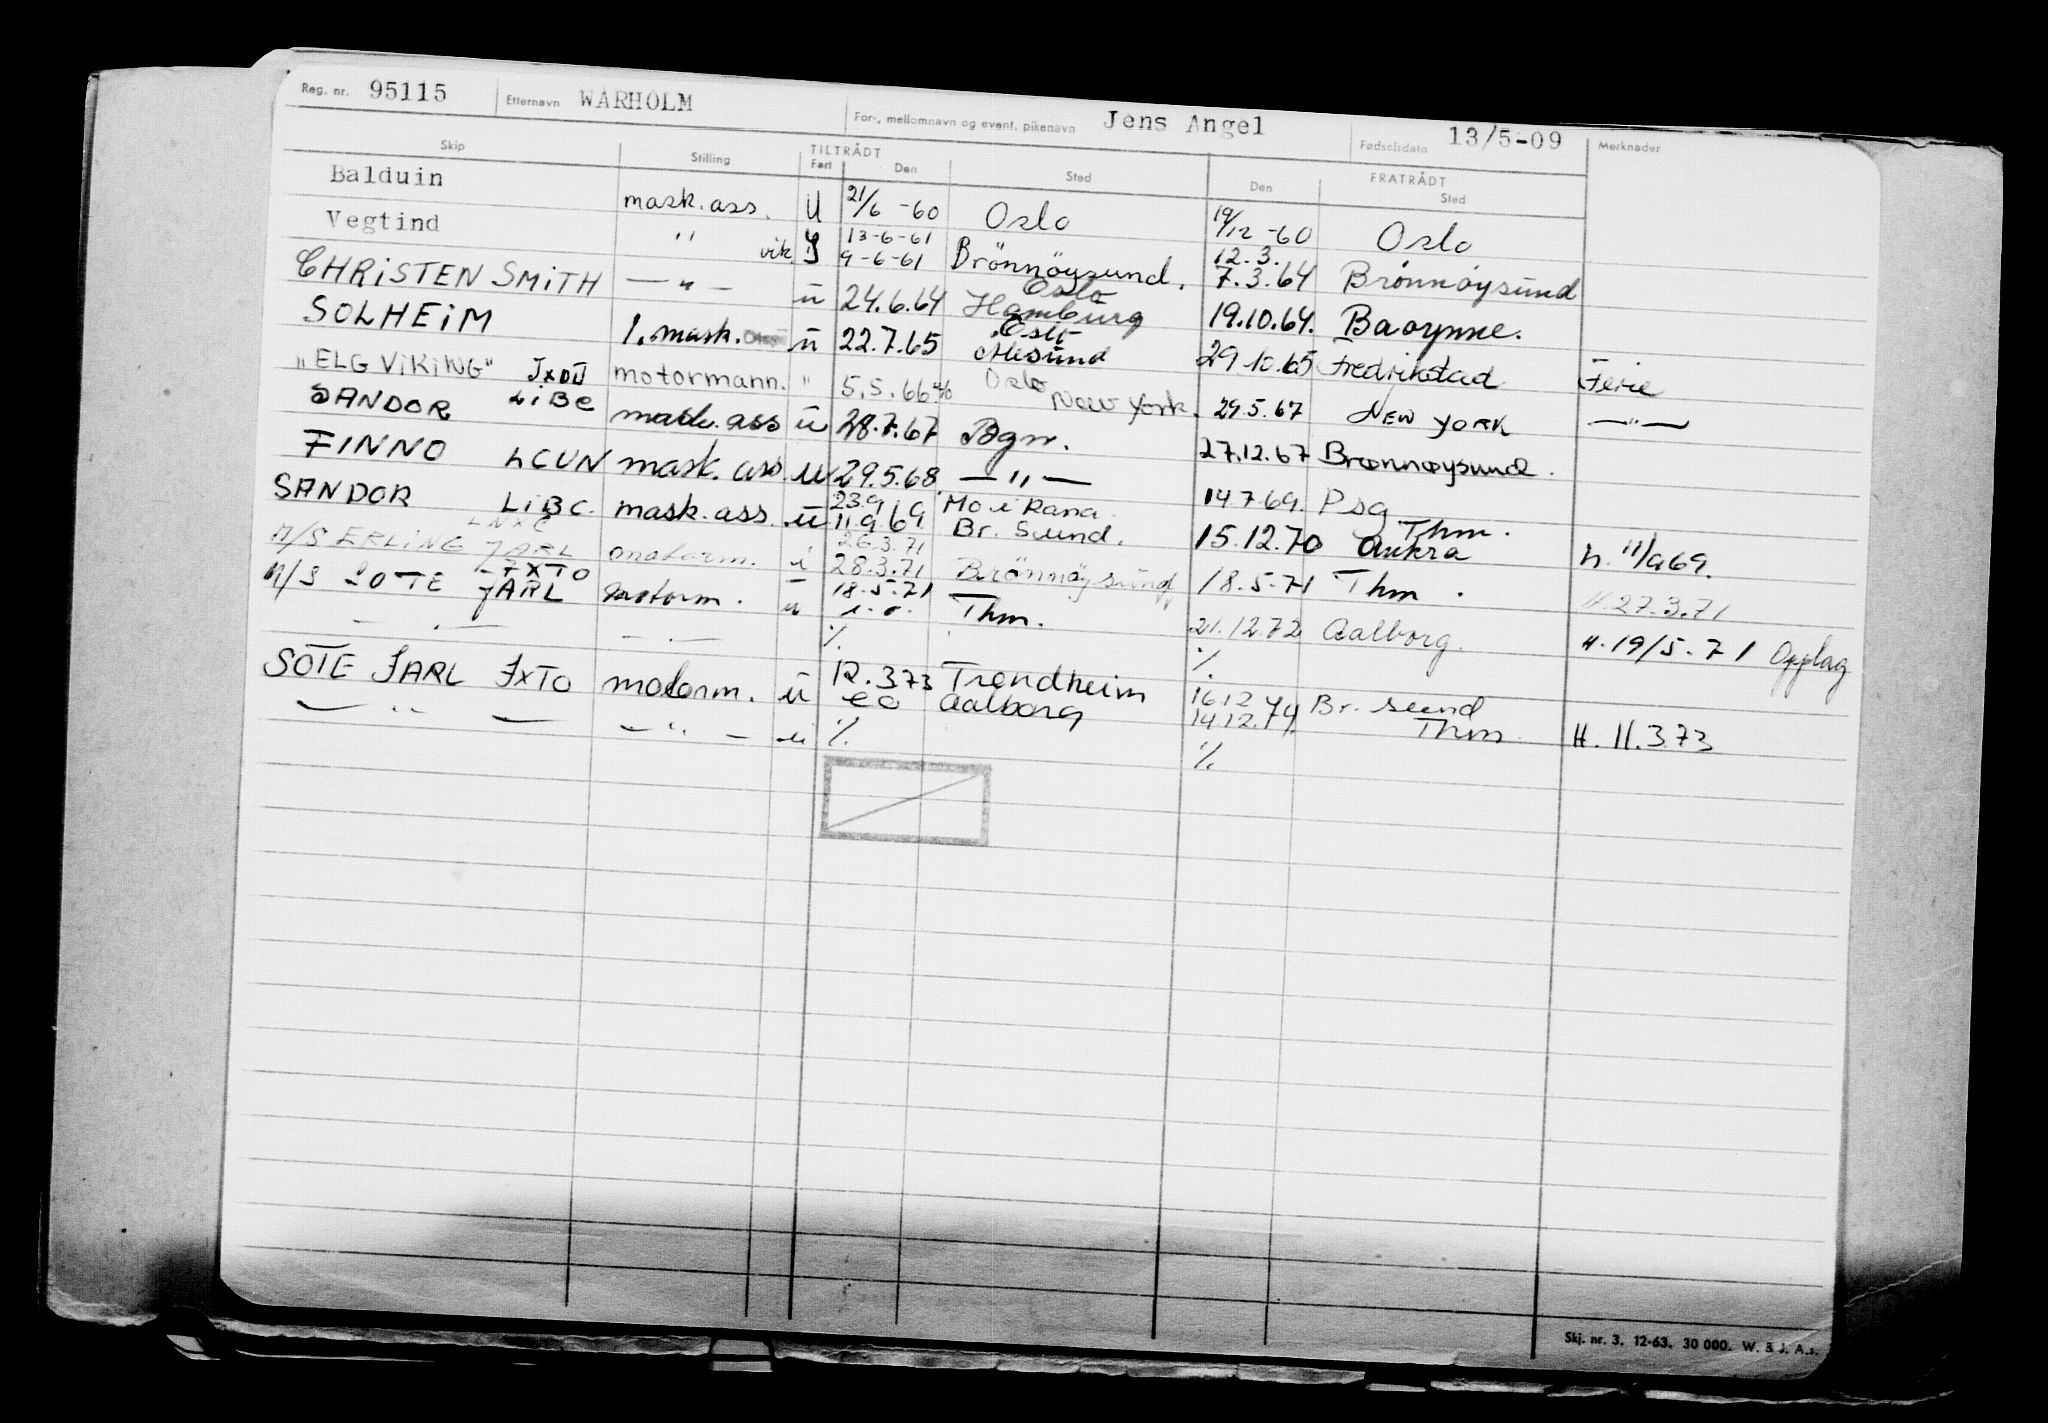 Reg. nr. 95115 Etternavn WARHOLM For-, mellomnavn og event. pikenavn Jens Angel Fødselsdato 13/5-09 Merknader
Skip Stilling TILTRÅDT Fart Den Sted FRATRÅDT Den Sted
Balduin mask. ass. U 21/6 -60 Oslo 19/12 -60 Oslo
Vegtind " vik 13-6-61 9-6-61 Brönnöysund. 12.3. 7.3.64 Brønnøysund
CHRISTEN SMITH — " — u 24.6.64 Oslo Hamburg 19.10.64.
SOLHEIM 1. mask. u 22.7.65 Ålesund 29.10.65 Fredrikstad Ferie
"ELG VIKING" JXDJ motormann. " 5.5.66 Oslo New York. 29.5.67 NEW YORK — " —
SANDOR LIBC mask. ass u 28.7.67 Bgn. 27.12.67 Brønnøysund.
FINNO LCUN mask. ass. u 29.5.68 — " — 14.7.69. Psg
SANDOR LIBC. mask. ass. u 23.9 11.9.69. Mo i Rana. Br. Sund. 15.12.70 Thm. Aukra h. 11/9 69.
M/S ERLING JARL LNXC motorm. i 26.3.71 28.3.71 Brönnöysund 18.5.71 Thm. H 27.3.71
M/S SOTE JARL JXTO motorm. u 18.5.71 Thm. 21.12.72 Aalborg. H. 19/5.71 Opplag
— . — — . — %. %.
SOTE JARL JXTO motorm. u 12.3.73 Trondheim Aalborg 16.12 14.12.74. Br. sund Thm H. 11.3.73
— " — — " — u %. %.
Skj. nr. 3. 12-63. 30 000. W. & J. A.s.